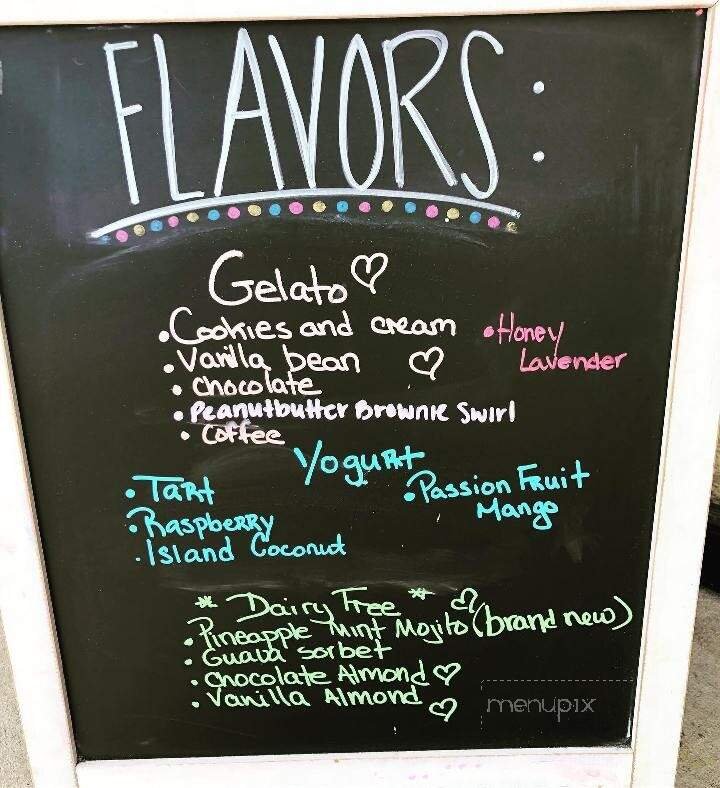 FLAVORS:
Gelato
• Cookies and cream
• Honey Lavender
• Vanilla bean
• chocolate
• Peanutbutter Brownie Swirl
• Coffee
Yogurt
• Tart
• Passion Fruit Mango
• Raspberry
• Island Coconut
* Dairy Free *
• Pineapple Mint Mojito (brand new)
• Guava sorbet
• chocolate Almond
• Vanilla Almond
menupix